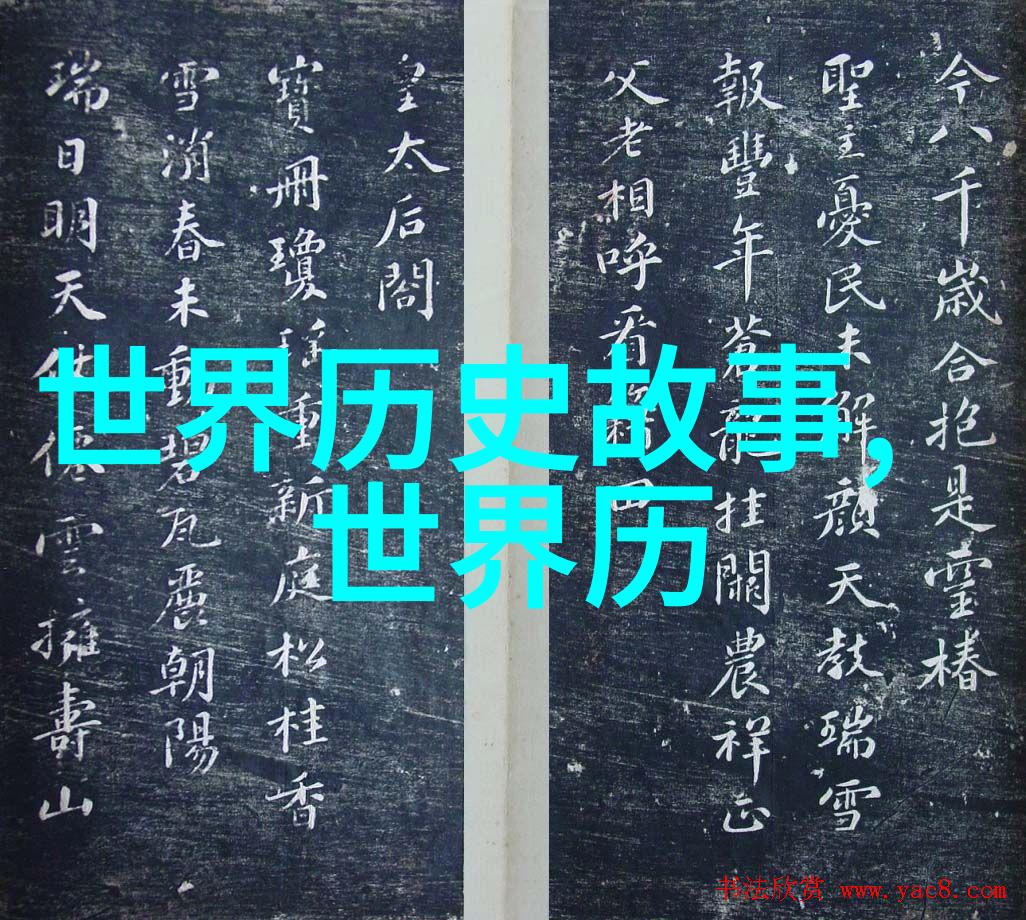 今八千歲合抱是靈椿
聖主憂民未解顏天教瑞雪
報豐年蒼龍挂闕農祥正
父老相呼看田
皇太后閣
寶冊瓊瑤重新庭松桂香
雪消春未動碧瓦麗朝陽
瑞日明天仗僊雲擁壽山
世界历史故事,
世界历
书法欣赏 www.yac8.com